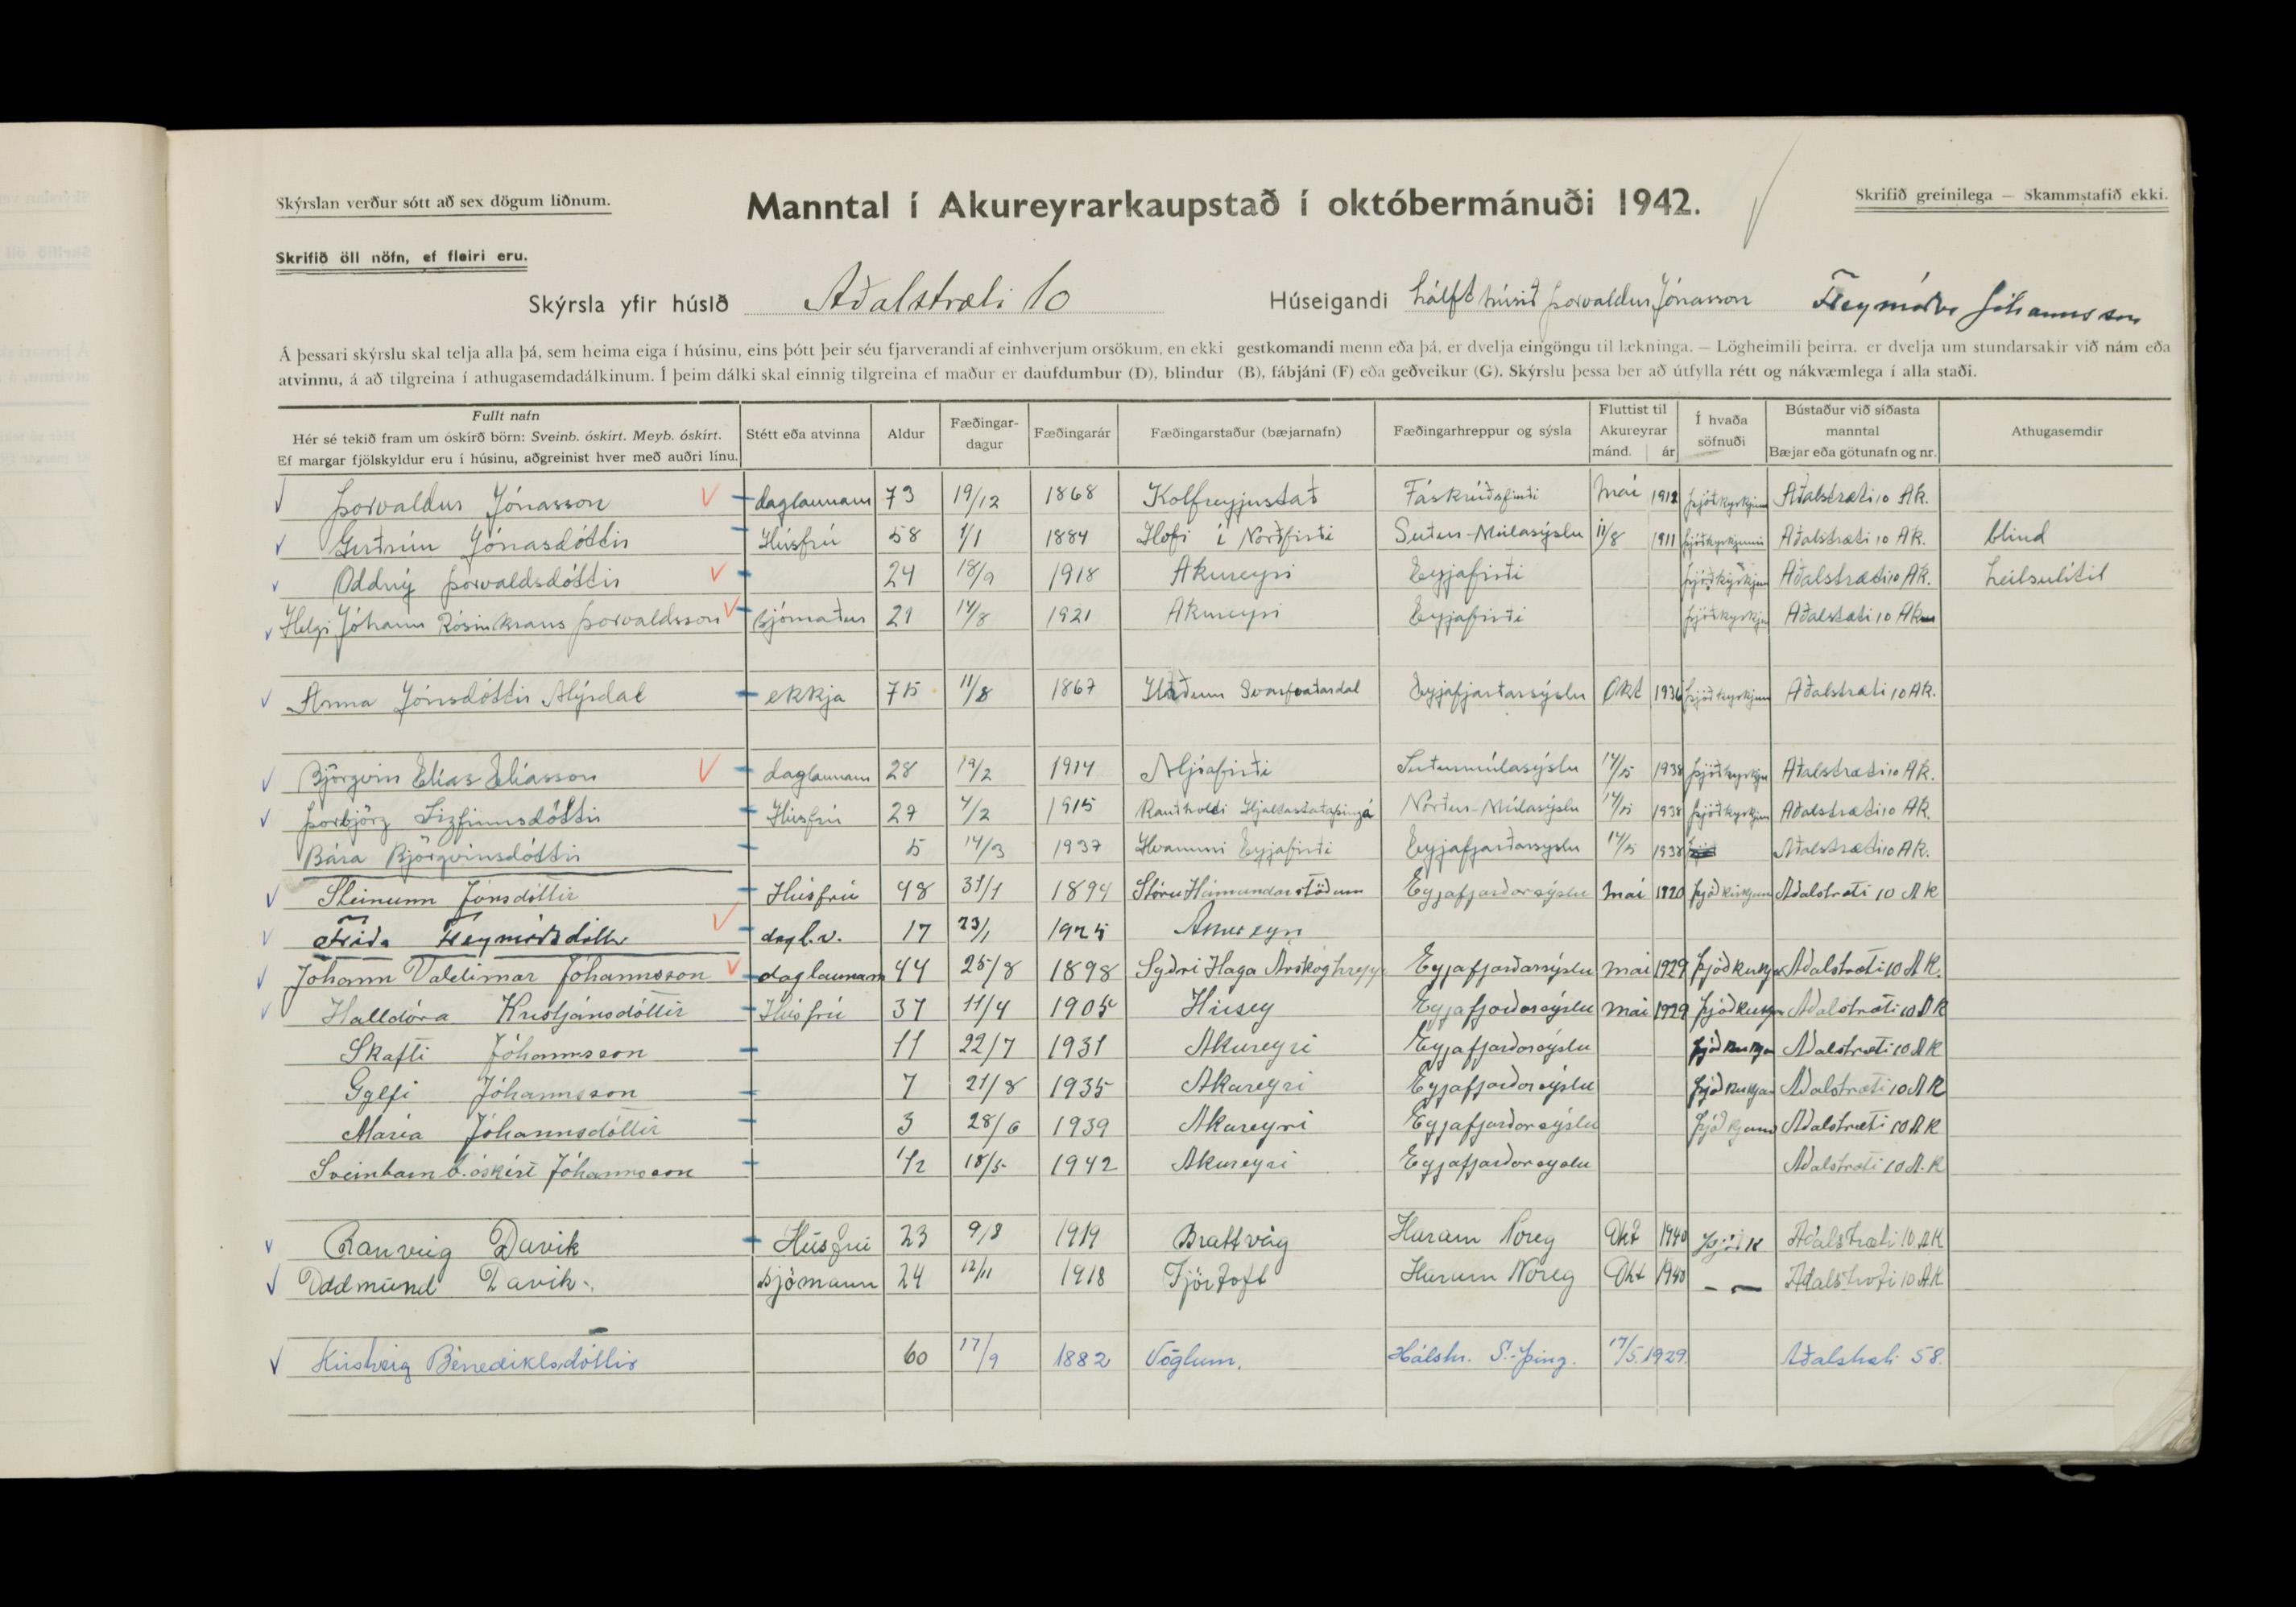 Skýrslan verður sótt að sex dögum liðnum.
Manntal í Akureyrarkaupstað í októbermánuði 1942.
Skrifið greinilega — Skammstafið ekki.
Skrifið öll nöfn, ef fleiri eru.
Skýrsla yfir húsið Aðalstræti 10 Húseigandi hálft húsið Þorvaldur Jónasson Freymóður Jóhannsson
Á þessari skýrslu skal telja alla þá, sem heima eiga í húsinu, eins þótt þeir séu fjarverandi af einhverjum orsökum, en ekki gestkomandi menn eða þá, er dvelja eingöngu til lækninga. — Lögheimili þeirra, er dvelja um stundarsakir við nám eða
atvinnu, á að tilgreina í athugasemdadálkinum. Í þeim dálki skal einnig tilgreina ef maður er daufdumbur (D), blindur (B), fábjáni (F) eða geðveikur (G). Skýrslu þessa ber að útfylla rétt og nákvæmlega í alla staði.
Fullt nafn
Hér sé tekið fram um óskírð börn: Sveinb. óskírt. Meyb. óskírt.
Ef margar fjölskyldur eru í húsinu, aðgreinist hver með auðri línu.
Stétt eða atvinna
Aldur
Fæðingar-
dagur
Fæðingarár
Fæðingarstaður (bæjarnafn)
Fæðingarhreppur og sýsla
Fluttist til
Akureyrar
mánd. ár
Í hvaða
söfnuði
Bústaður við síðasta
manntal
Bæjar eða götunafn og nr.
Athugasemdir
Þorvaldur Jónasson daglaunam 73 19/12 1868 Kolfreyjustað Fáskrúðsfirði Maí 1912 Aðalstræti 10 Ak.
Guðrún Jónasdóttir Húsfrú 58 1/1 1884 Hofi í Norðfirði Suður-Múlasýslu 11/8 1911 Aðalstræti 10 Ak. blind
Oddný Þorvaldsdóttir 24 18/9 1918 Akureyri Eyjafirði Aðalstræti 10 Ak. heilsulítil
Helgi Jóhann Rósinkrans Þorvaldsson sjómaður 21 14/8 1921 Akureyri Eyjafirði Aðalstræti 10 Ak
Anna Jónsdóttir Mýrdal ekkja 75 11/8 1867 Svarfaðardal Eyjafjarðarsýslu Okt 1936 Aðalstræti 10 Ak.
Björgvin Elías Elíasson daglaunam 28 19/2 1914 Mjóafirði Suðurmúlasýslu 14/5 1938 Aðalstræti 10 Ak.
Þorbjörg Sigfinnsdóttir Húsfrú 27 4/2 1915 Rauðholti Hjaltastaðaþinghá Norður-Múlasýslu 14/5 1938 Aðalstræti 10 Ak.
Bára Björgvinsdóttir 5 14/3 1937 Hvammi Eyjafirði Eyjafjarðarsýslu 14/5 1938 Aðalstræti 10 Ak.
Steinunn Jónsdóttir Húsfrú 48 31/1 1894 Stóru Hámundarstöðum Eyjafjarðarsýslu Maí 1920 Þjóðkirkjunni Aðalstræti 10 AK
Fríða Freymóðsdóttir dagl.v. 17 23/1 1925 Akureyri
Jóhann Valdimar Jóhannsson daglaunam 44 25/8 1898 Syðri Haga Árskóghrepp Eyjafjarðarsýslu maí 1929 Aðalstræti 10 A K.
Halldóra Kristjánsdóttir Húsfrú 37 11/4 1905 Hrísey Eyjafjarðarsýslu maí 1929 Aðalstræti 10 A K
Skafti Jóhannsson 11 22/7 1931 Akureyri Eyjafjarðarsýslu Aðalstræti 10 A K
Gylfi Jóhannsson 7 21/8 1935 Akureyri Eyjafjarðarsýslu Aðalstræti 10 A K
María Jóhannsdóttir 3 28/6 1939 Akureyri Eyjafjarðarsýslu Aðalstræti 10 A K
Sveinbarn óskírt Jóhannsson 1/2 18/5 1942 Akureyri Eyjafjarðarsyslu Aðalstræti 10 A. K
Ranveig Davik Húsfrú 23 9/8 1919 Brattvåg Haram Noreg Okt 1940 Þjóðk Aðalstræti 10 AK
Oddmund Davik sjómann 24 12/11 1918 Fjörtoft Haram Noreg Okt 1940 — — Aðalstræti 10 AK
Kristveig Benediktsdóttir 60 17/9 1882 Vöglum. Hálshr. S.-Þing. 17/5. 1929. Aðalstræti 58.